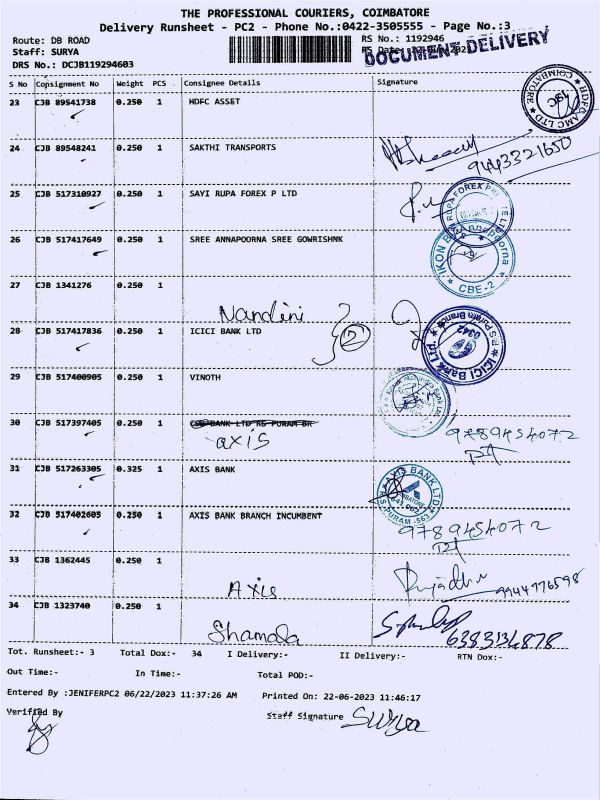 THE PROFESSIONAL COURIERS, COIMBATORE
Delivery Runsheet - PC2 - Phone No.:0422-3505555 - Page No.:3
Route: DB ROAD RS No.: 1192946
Staff: SURYA RS Date:
DOCUMENT DELIVERY
DRS No.: DCJB119294603
S No Consignment No Weight PCS Consignee Details Signature
23 CJB 89541738 0.250 1 HDFC ASSET
HDFC AMC LTD COIMBATORE ISC
24 CJB 89548241 0.250 1 SAKTHI TRANSPORTS
9443321650
25 CJB 517310927 0.250 1 SAYI RUPA FOREX P LTD
26 CJB 517417649 0.250 1 SREE ANNAPOORNA SREE GOWRISHNK
CBE-2
27 CJB 1341276 0.250 1
Nandini
28 CJB 517417836 0.250 1 ICICI BANK LTD
2
ICICI Bank Ltd R S Puram Branch 0342
29 CJB 517400905 0.250 1 VINOTH
30 CJB 517397405 0.250 1 CSB BANK LTD RS PURAM BR
axis
9789454072
31 CJB 517263305 0.325 1 AXIS BANK
AXIS BANK LTD
R.S. PURAM -563
32 CJB 517402605 0.250 1 AXIS BANK BRANCH INCUMBENT
9789454072
33 CJB 1362445 0.250 1
Axis
9944976598
34 CJB 1323740 0.250 1
Shamala
6383134878
Tot. Runsheet:- 3 Total Dox:- 34 I Delivery:- II Delivery:- RTN Dox:-
Out Time:- In Time:- Total POD:-
Entered By :JENIFERPC2 06/22/2023 11:37:26 AM Printed On: 22-06-2023 11:46:17
Verified By Staff Signature Surya